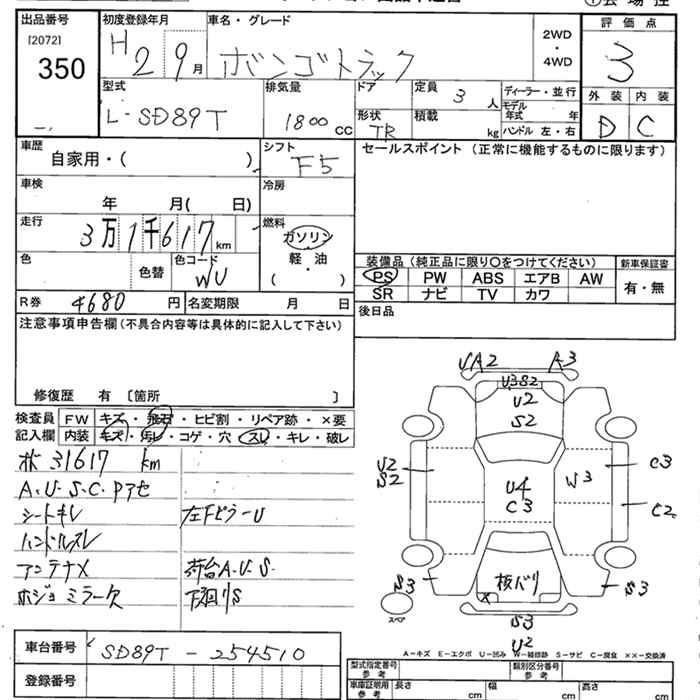 出品番号 [2072] 350
初度登録年月 H 2 9 月
車名・グレード ボンゴトラック
2WD ・ 4WD
評価点 3
外装 D 内装 C
型式 L-SD89T
排気量 1800 cc
ドア
形状 TR
定員 3 人
積載 kg
ディーラー・並行
モデル年式 年
ハンドル 左・右
車歴 自家用・( )
シフト F5
セールスポイント (正常に機能するものに限ります)
車検 年 月( 日)
冷房
走行 3万1千617 km
燃料 ガソリン ・ 軽・油 ( )
色 色替 色コード WU
装備品 (純正品に限り○をつけてください)
新車保証書 有・無
PS PW ABS エアB AW
SR ナビ TV カワ
R券 4680 円 名変期限 月 日
後日品
注意事項申告欄 (不具合内容等は具体的に記入して下さい)
修復歴 有 [箇所 ]
検査員記入欄
FW キズ・飛石・ヒビ割・リペア跡・×要
内装 キズ・汚レ・コゲ・穴・スレ・キレ・破レ
31617 km
A.U.S.C.Pアセ
シートキレ 左FピラーU
ハンドルスレ
アンテナX 荷台A.U.S.
ホジョミラー欠 下廻りS
車台番号 SD89T-254510
登録番号
UA2 A3
U3S2
U2
S2
U2
S2
U4
C3
W3
C3
C2
核バリ
X
S3
S3
S3
U2
スペア
A－キズ E－エクボ U－凹み W－補修跡 S－サビ C－腐食 ××－交換済
型式指定番号 参考
類別区分番号 参考
車庫証明用 参考 長さ cm 幅 cm 高さ cm